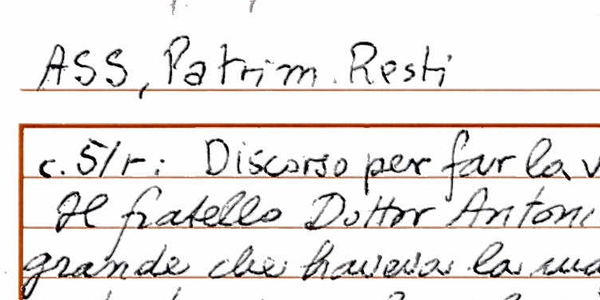 ASS, Patrim. Resti
c. 51r: Discorso per far la v
Il fratello Dottor Antoni
grande che haveva la ma